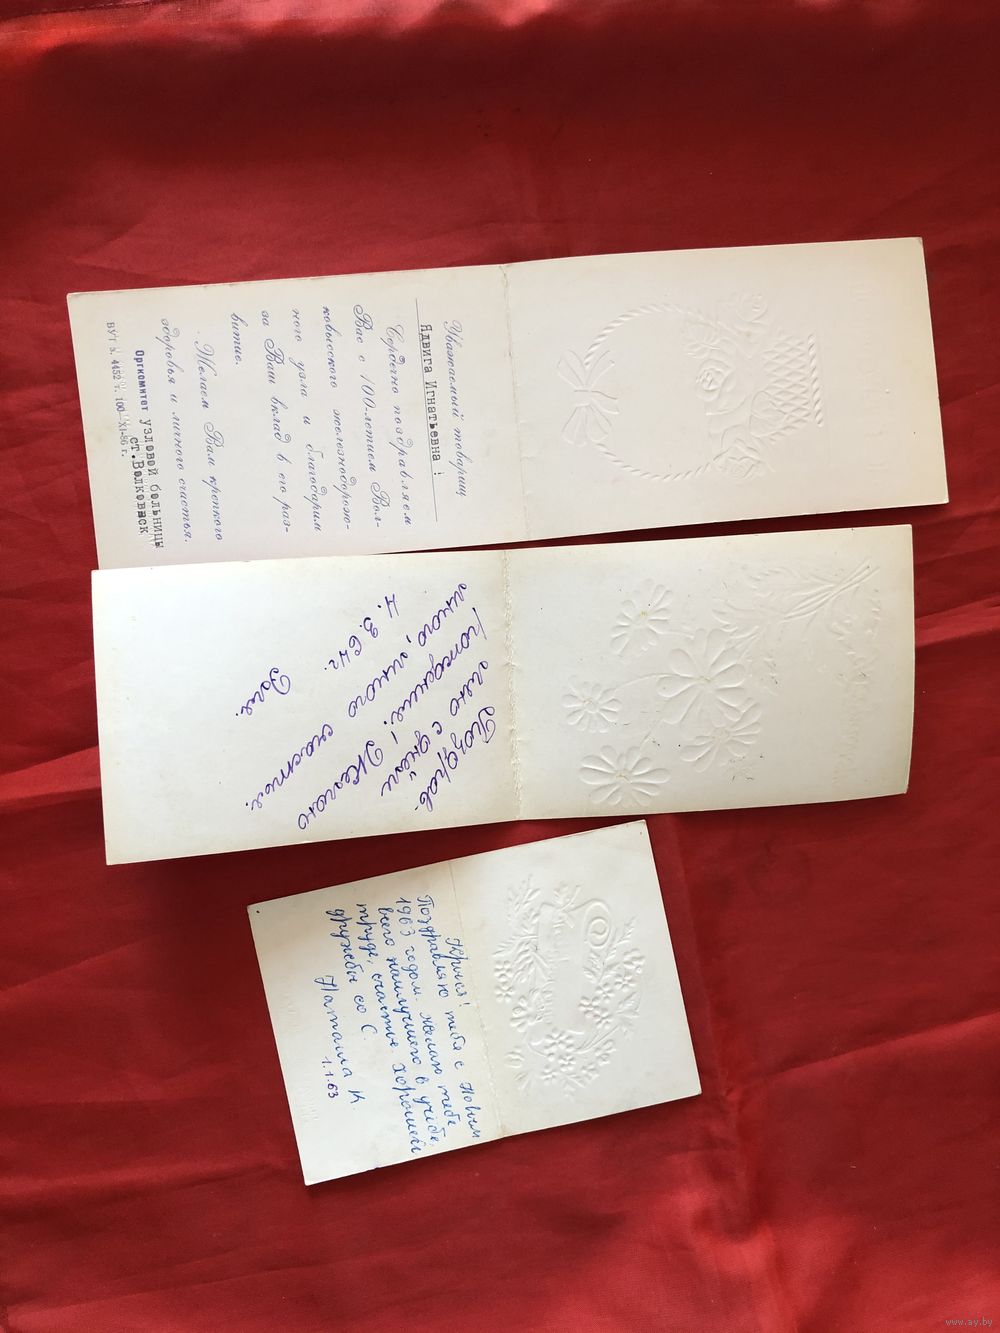 Уважаемый товарищ
Ядвига Игнатьевна !
Сердечно поздравляем
Вас с 100-летием Вол-
ковысского железнодорож-
ного узла и благодарим
за Ваш вклад в его раз-
витие.
Желаем Вам крепкого
здоровья и личного счастья.
Оргкомитет узловой больницы
ст.Волковыск
ВУТ з. 4452 т. 100 XI-86 г.
Поздрав-
ляю с днём
рождения! Желаю
много, много счастья.
4.3.64г.
Эля.
Крыся!
Поздравляю тебя с Новым
1963 годом. желаю тебе
всего наилучшего в учёбе,
труде, счастье. Хорошей
дружбы со С.
Наташа К.
1.1.63
www.ay.by